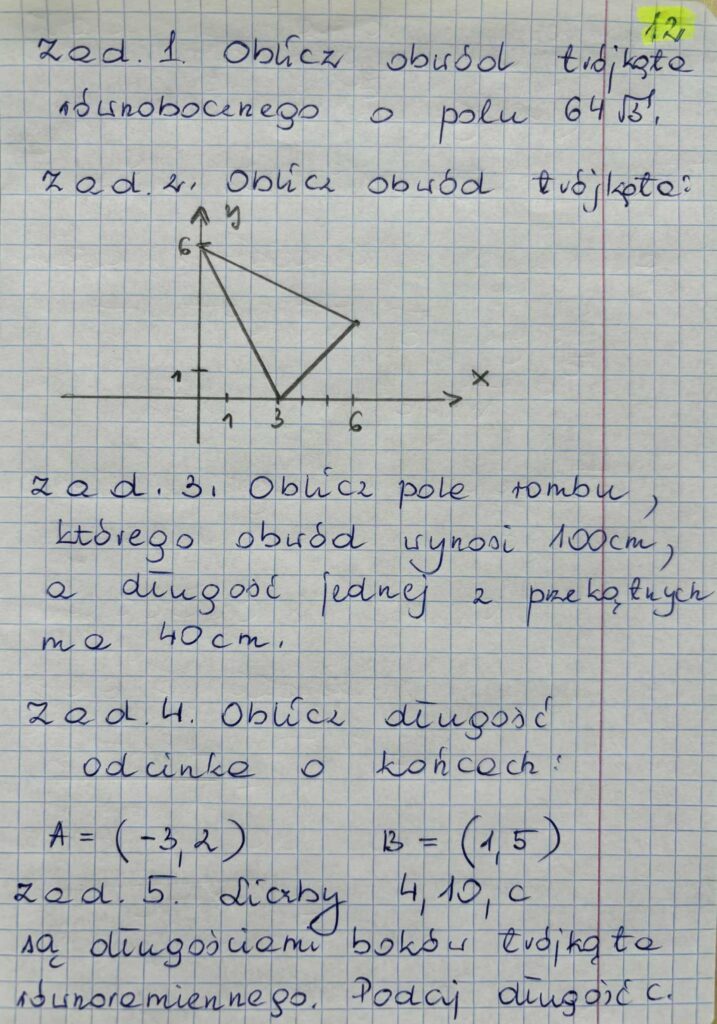 12
Zad. 1. Oblicz obwód trójkąta
równobocznego o polu 64√3.
Zad. 2. Oblicz obwód trójkąta:
y
6
1
x
1 3 6
Zad. 3. Oblicz pole rombu,
którego obwód wynosi 100cm,
a długość jednej z przekątnych
ma 40cm.
Zad. 4. Oblicz długość
odcinka o końcach:
A = (-3, 2) B = (1, 5)
Zad. 5. Liczby 4, 10, c
są długościami boków trójkąta
równoramiennego. Podaj długość c.